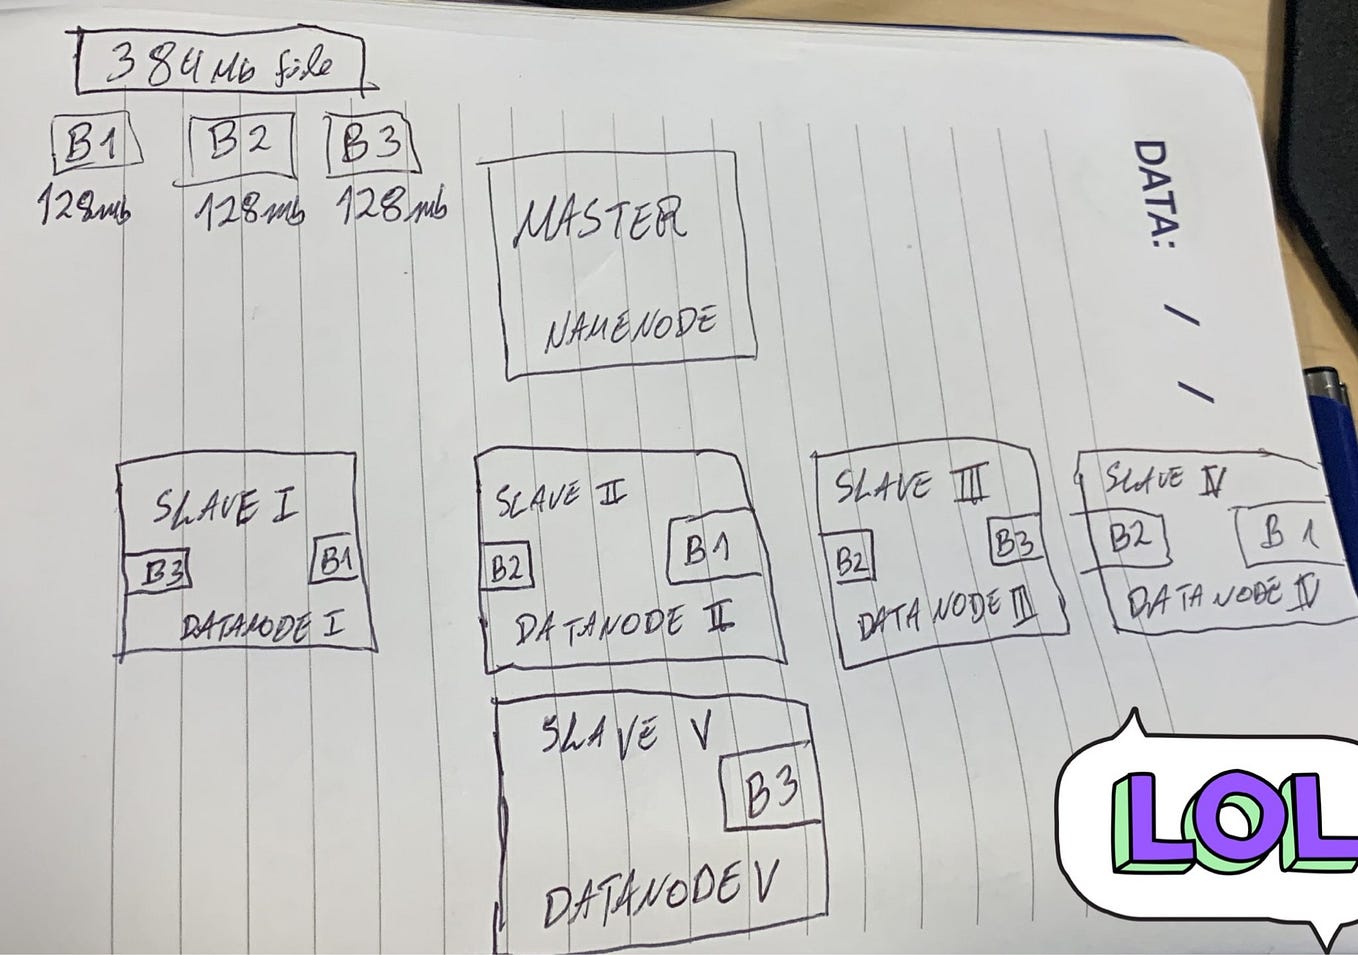 384Mb file
B1 B2 B3
128mb 128mb 128mb
MASTER
NAMENODE
DATA: / /
SLAVE I
B3 B1
DATANODE I
SLAVE II
B2 B1
DATANODE II
SLAVE III
B2 B3
DATANODE III
SLAVE IV
B2 B1
DATANODE IV
SLAVE V
B3
DATANODE V
LOL